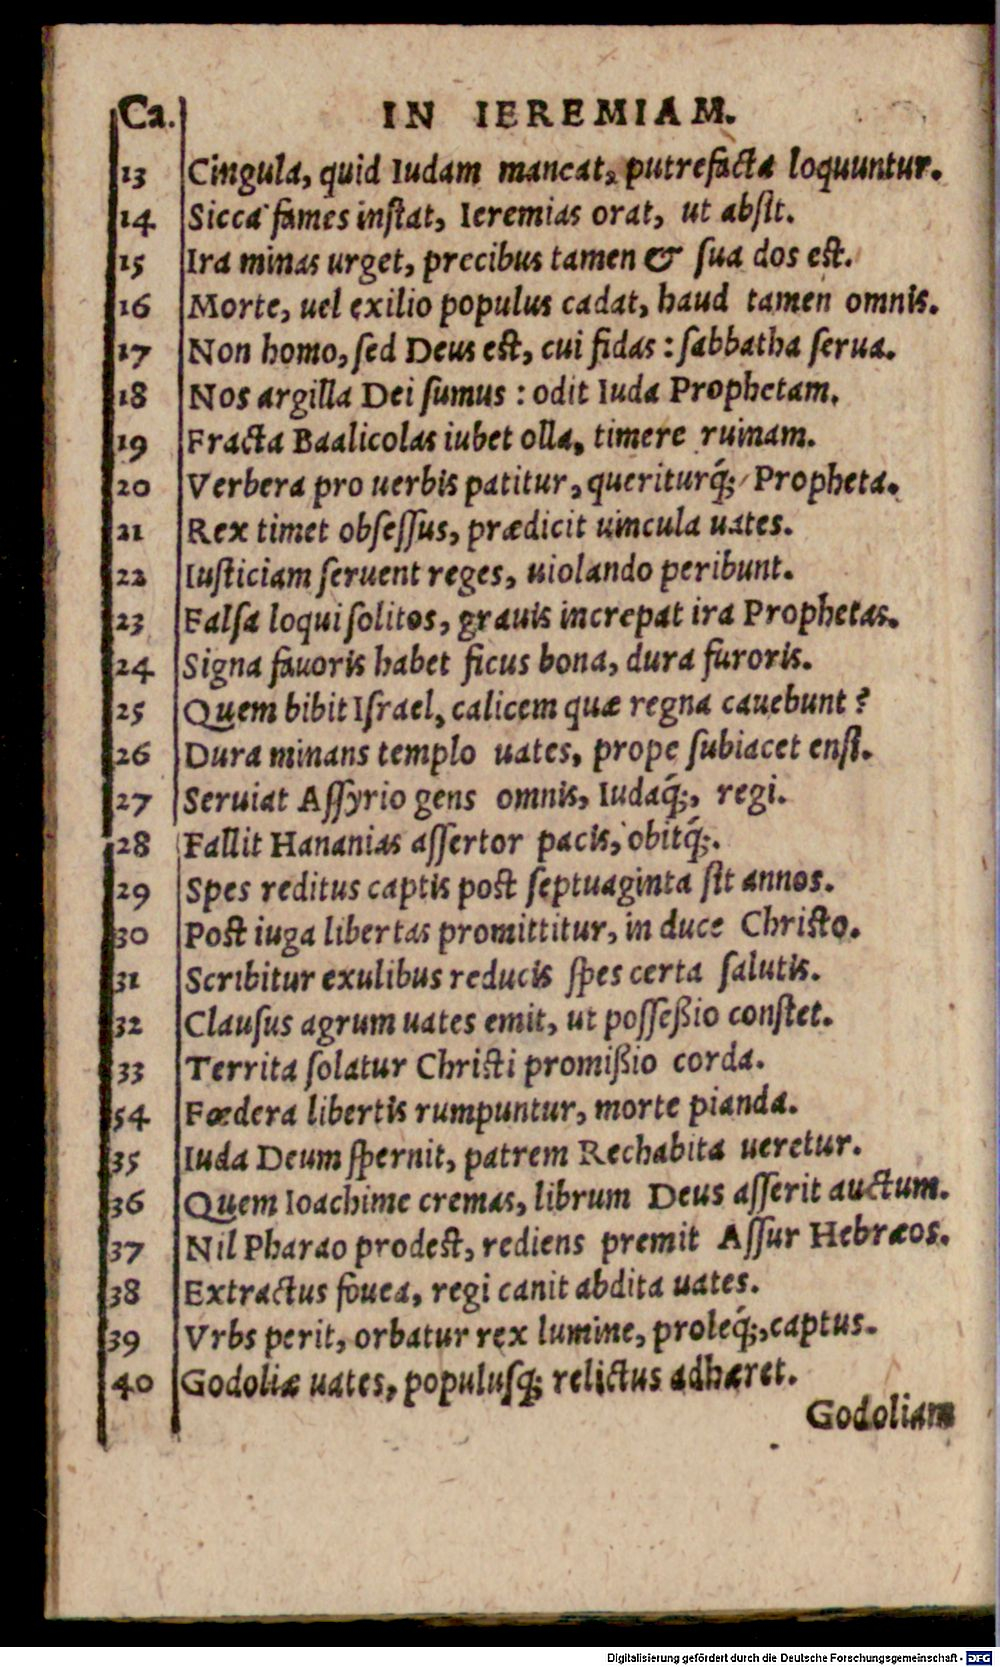 Ca. IN IEREMIAM.
13 Cingula, quid Iudam maneat, putrefacta loquuntur.
14 Sicca fames inſtat, Ieremias orat, ut abſit.
15 Ira minas urget, precibus tamen & ſua dos eſt.
16 Morte, uel exilio populus cadat, haud tamen omnis.
17 Non homo, ſed Deus eſt, cui fidas : ſabbatha ſerua.
18 Nos argilla Dei ſumus : odit Iuda Prophetam.
19 Fracta Baalicolas iubet olla, timere ruinam.
20 Verbera pro uerbis patitur, queriturq́; Propheta.
21 Rex timet obſeſſus, prædicit uincula uates.
22 Iuſticiam ſeruent reges, uiolando peribunt.
23 Falſa loqui ſolitos, grauis increpat ira Prophetas.
24 Signa fauoris habet ficus bona, dura furoris.
25 Quem bibit Iſrael, calicem quæ regna cauebunt ?
26 Dura minans templo uates, prope ſubiacet enſi.
27 Seruiat Aſſyrio gens omnis, Iudaq́;, regi.
28 Fallit Hananias aſſertor pacis, obitq́;.
29 Spes reditus captis poſt ſeptuaginta ſit annos.
30 Poſt iuga libertas promittitur, in duce Chriſto.
31 Scribitur exulibus reducis ſpes certa ſalutis.
32 Clauſus agrum uates emit, ut poſſeßio conſtet.
33 Territa ſolatur Chriſti promißio corda.
54 Fœdera libertis rumpuntur, morte pianda.
35 Iuda Deum ſpernit, patrem Rechabita ueretur.
36 Quem Ioachime cremas, librum Deus aſſerit auctum.
37 Nil Pharao prodeſt, rediens premit Aſſur Hebræos.
38 Extractus fouea, regi canit abdita uates.
39 Vrbs perit, orbatur rex lumine, proleq́;, captus.
40 Godoliæ uates, populuſq; relictus adhæret.
Godoliam
Digitalisierung gefördert durch die Deutsche Forschungsgemeinschaft - DFG